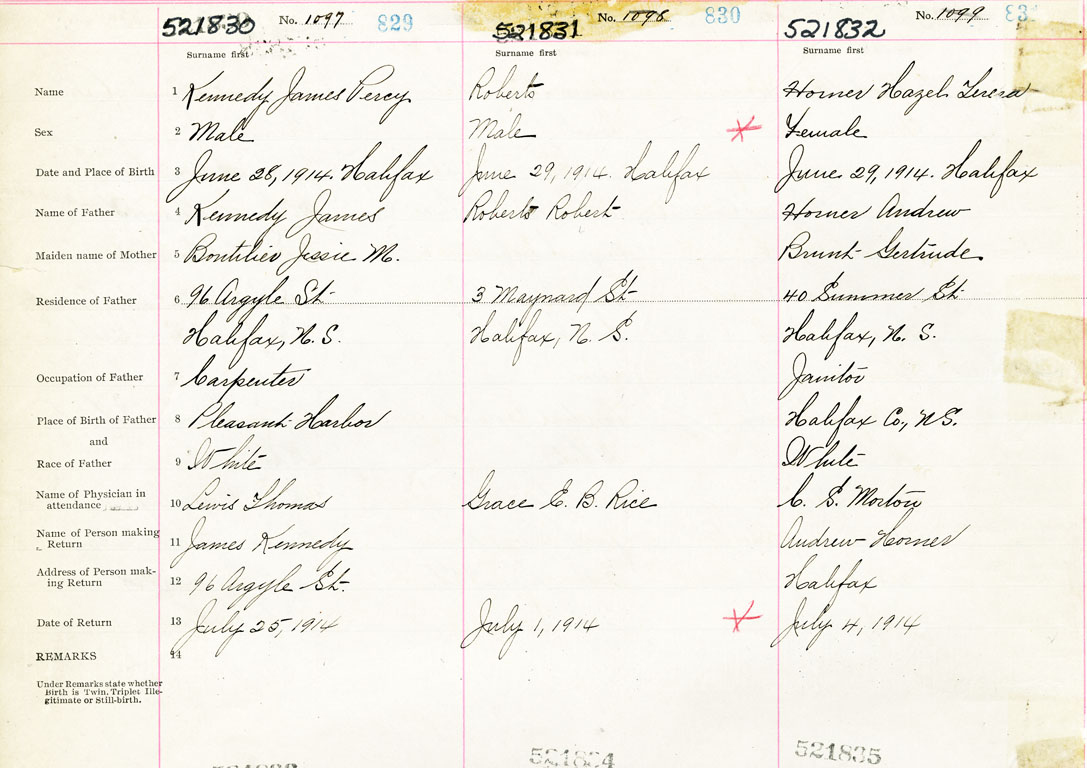 521830 No. 1097 829 521831 No. 1098 830 521832 No. 1099 83
Surname first Surname first Surname first
Name 1 Kennedy James Percy Roberts Horner Hazel Teresa
Sex 2 Male Male Female
Date and Place of Birth 3 June 28, 1914. Halifax June 29, 1914. Halifax June 29, 1914. Halifax
Name of Father 4 Kennedy James Roberts Robert Horner Andrew
Maiden name of Mother 5 Boutilier Jessie M. Brunt Gertrude
Residence of Father 6 96 Argyle St 3 Maynard St 40 Summer St
Halifax, N. S. Halifax, N. S. Halifax, N. S.
Occupation of Father 7 Carpenter Janitor
Place of Birth of Father 8 Pleasant Harbor Halifax Co., N.S.
and
Race of Father 9 White White
Name of Physician in
attendance 10 Lewis Thomas Grace E. B. Rice C. S. Morton
Name of Person making
Return 11 James Kennedy Andrew Horner
Address of Person mak-
ing Return 12 96 Argyle St. Halifax
Date of Return 13 July 25, 1914 July 1, 1914 July 4, 1914
REMARKS 14
Under Remarks state whether
Birth is Twin, Triplet Ille-
gitimate or Still-birth.
521834 521835